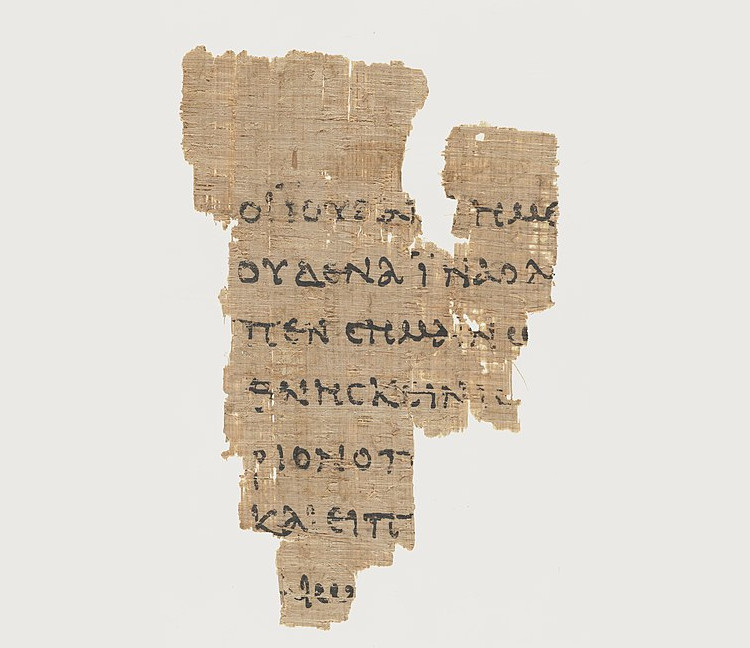 ΟΙ ΙΟΥΔΑΙ ΗΜΕ
ΟΥΔΕΝΑ ΙΝΑ Ο Λ
ΠΕΝ ϹΗΜΑΙΝΩ
ΘΝΗϹΚΕΙΝ ΙϹ
ΡΙΟΝ Ο Π
ΚΑΙ ΕΙΠ
ΑΙΩ